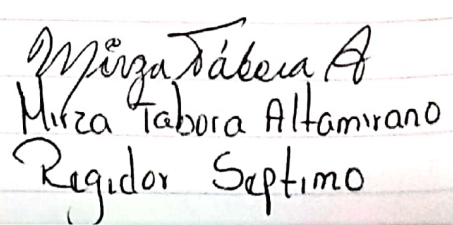 Mirza Tábora A
Mirza Tabora Altamirano
Regidor Septimo